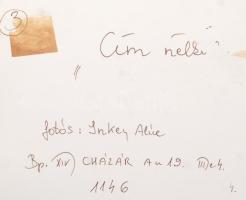 3
"Cím nélkül"
fotós: Inkey Alice
Bp. XIV CHÁZÁR A u 19. III e 4.
1146
4.